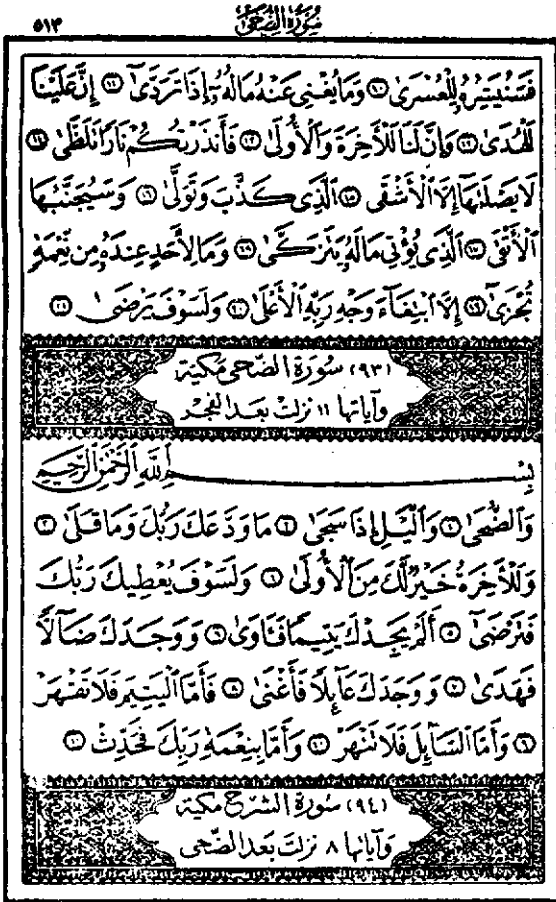 ٥١٣ سُورَةُ الضُّحَىٰ
فَسَنُيَسِّرُهُۥ لِلْعُسْرَىٰ ١٠ وَمَا يُغْنِى عَنْهُ مَالُهُۥٓ إِذَا تَرَدَّىٰٓ ١١ إِنَّ عَلَيْنَا
لَلْهُدَىٰ ١٢ وَإِنَّ لَنَا لَلْءَاخِرَةَ وَٱلْأُولَىٰ ١٣ فَأَنذَرْتُكُمْ نَارًا تَلَظَّىٰ ١٤
لَا يَصْلَىٰهَآ إِلَّا ٱلْأَشْقَى ١٥ ٱلَّذِى كَذَّبَ وَتَوَلَّىٰ ١٦ وَسَيُجَنَّبُهَا
ٱلْأَتْقَى ١٧ ٱلَّذِى يُؤْتِى مَالَهُۥ يَتَزَكَّىٰ ١٨ وَمَا لِأَحَدٍ عِندَهُۥ مِن نِّعْمَةٍ
تُجْزَىٰٓ ١٩ إِلَّا ٱبْتِغَآءَ وَجْهِ رَبِّهِ ٱلْأَعْلَىٰ ٢٠ وَلَسَوْفَ يَرْضَىٰ ٢١
(٩٣) سُورَة الضّحى مَكيّة
وآياتها ١١ نزلت بعَد الفجر
بِسْمِ ٱللَّهِ ٱلرَّحْمَٰنِ ٱلرَّحِيمِ
وَٱلضُّحَىٰ ١ وَٱلَّيْلِ إِذَا سَجَىٰ ٢ مَا وَدَّعَكَ رَبُّكَ وَمَا قَلَىٰ ٣
وَلَلْءَاخِرَةُ خَيْرٌ لَّكَ مِنَ ٱلْأُولَىٰ ٤ وَلَسَوْفَ يُعْطِيكَ رَبُّكَ
فَتَرْضَىٰٓ ٥ أَلَمْ يَجِدْكَ يَتِيمًا فَـَٔاوَىٰ ٦ وَوَجَدَكَ ضَآلًّا
فَهَدَىٰ ٧ وَوَجَدَكَ عَآئِلًا فَأَغْنَىٰ ٨ فَأَمَّا ٱلْيَتِيمَ فَلَا تَقْهَرْ
٩ وَأَمَّا ٱلسَّآئِلَ فَلَا تَنْهَرْ ١٠ وَأَمَّا بِنِعْمَةِ رَبِّكَ فَحَدِّثْ ١١
(٩٤) سُورَة الشرّح مَكيّة
وَآياتها ٨ نزلت بَعَد الضّحى